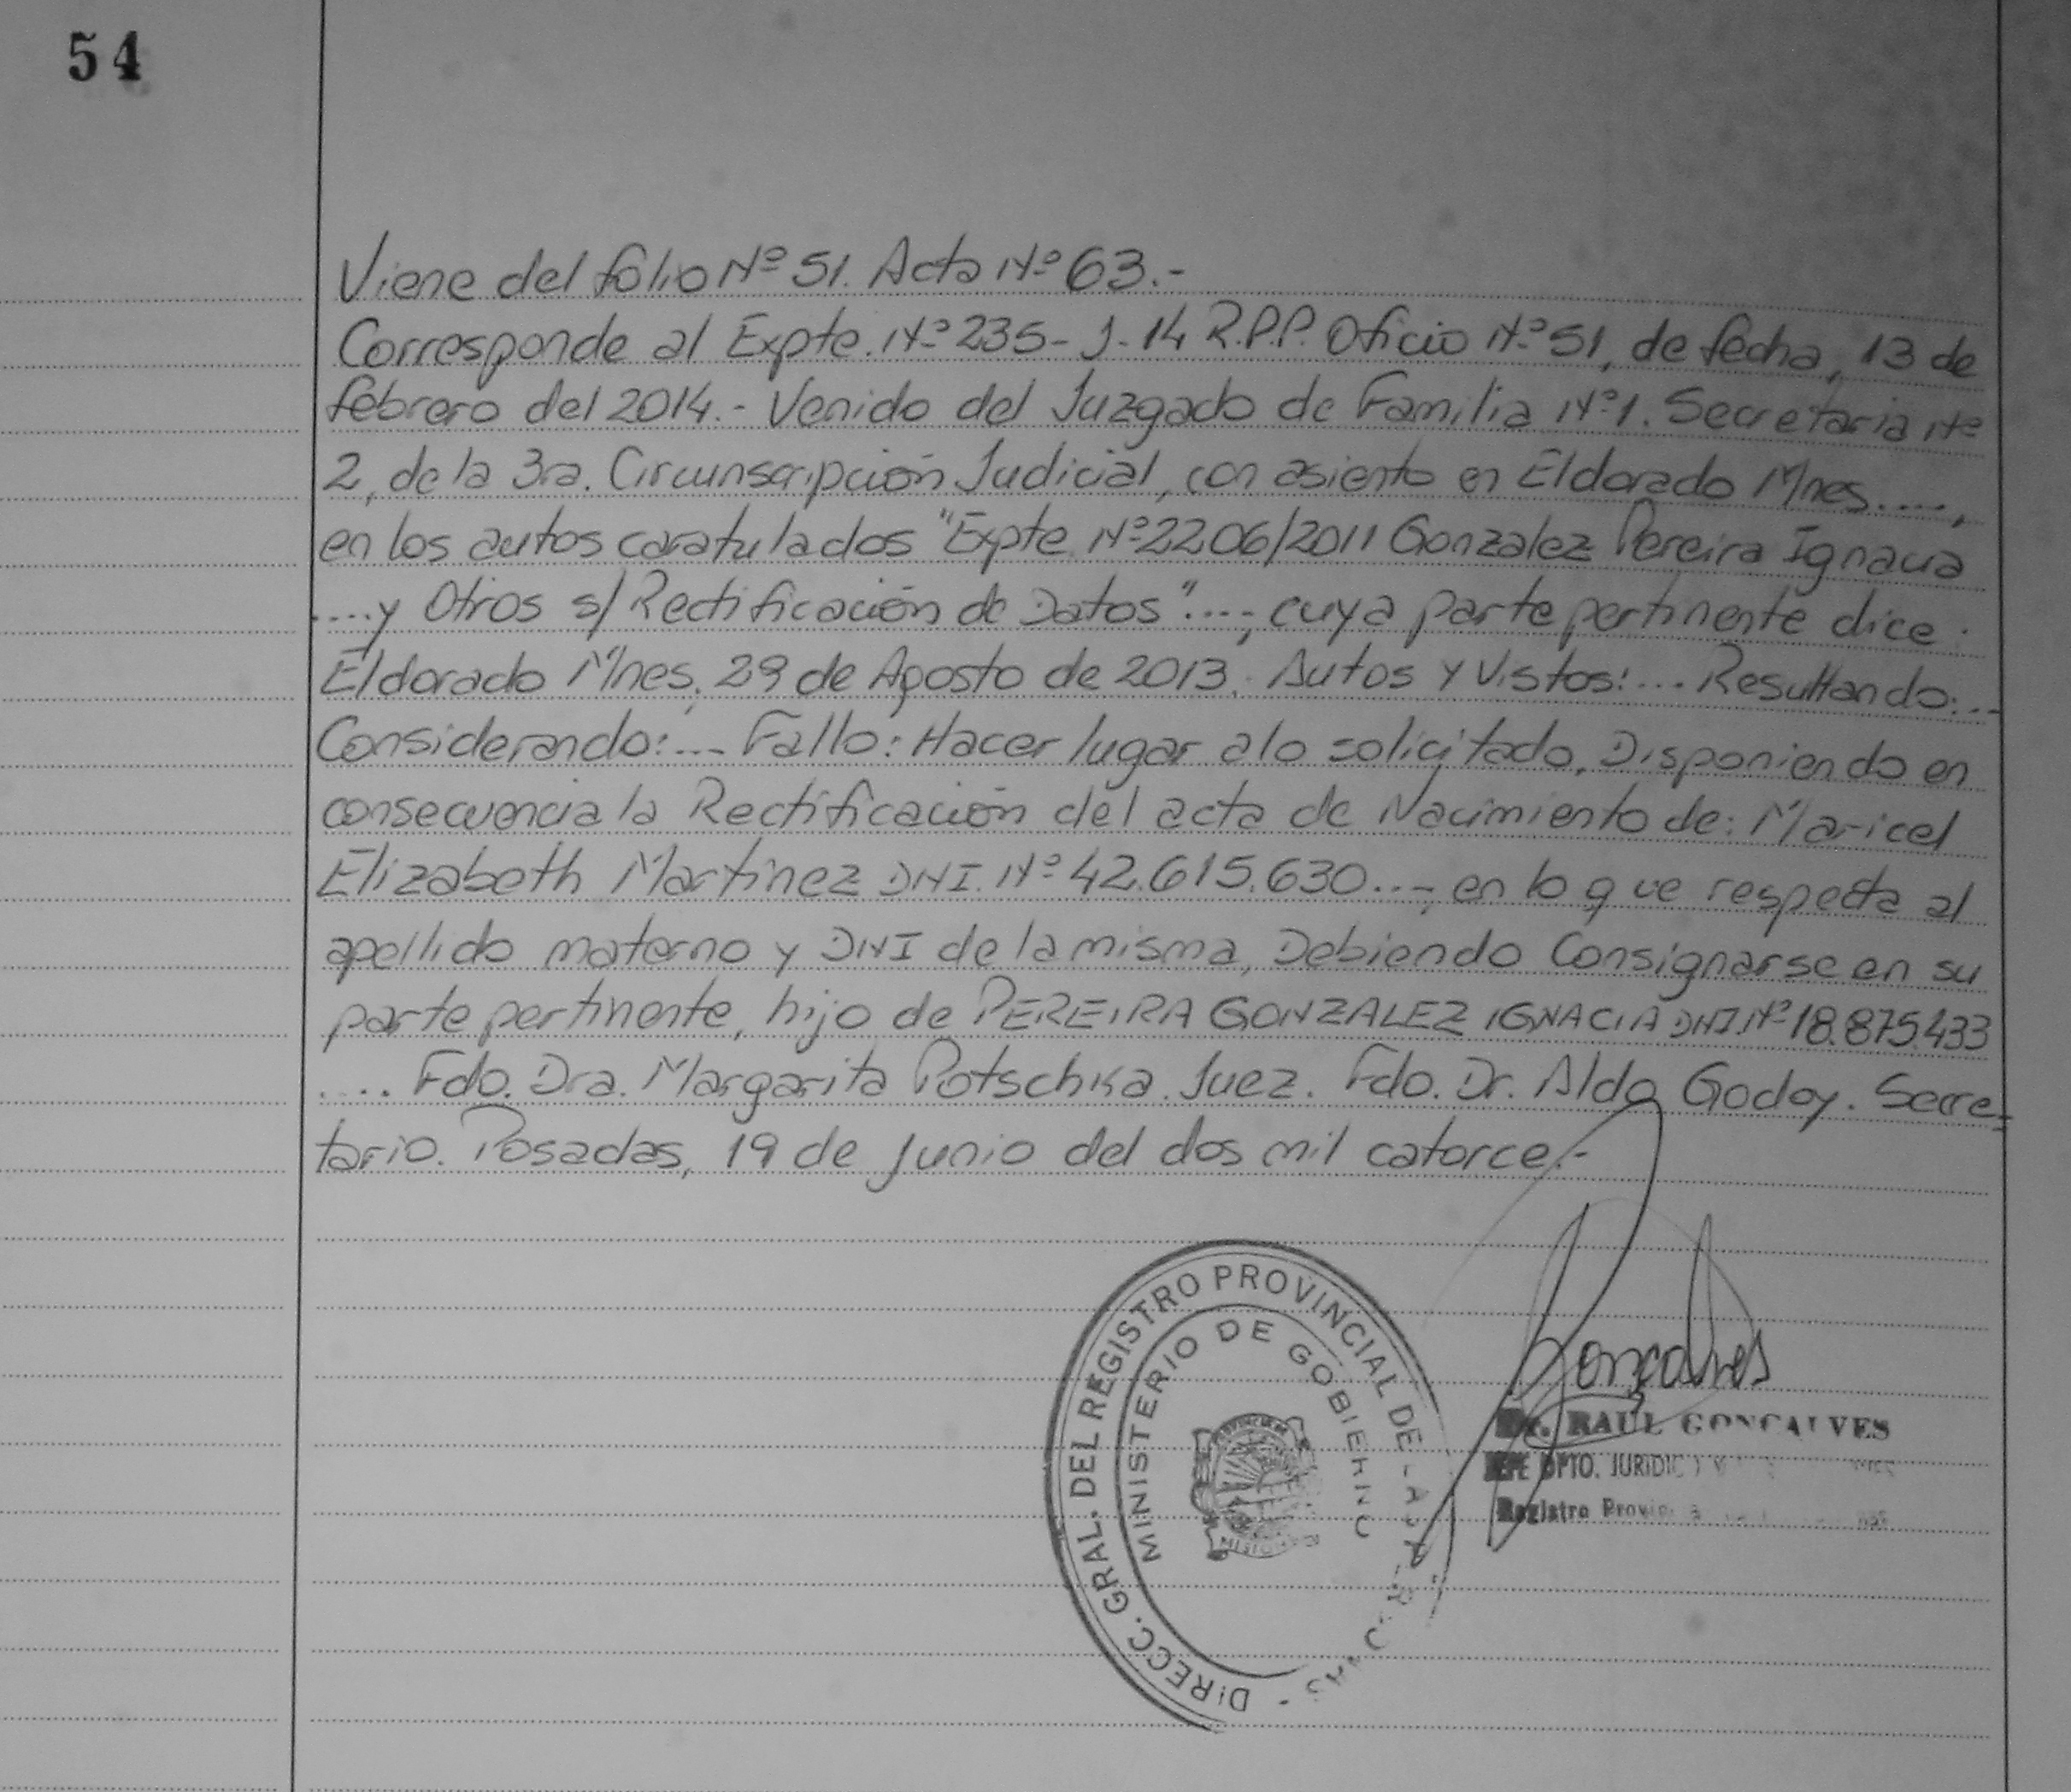 54
Viene del folio Nº 51. Acta Nº 63.-
Corresponde al Expte. Nº 235-J-14 R.P.P. Oficio Nº 51, de fecha, 13 de
febrero del 2014.- Venido del Juzgado de Familia Nº 1. Secretaria Nº
2, de la 3ra. Circunscripción Judicial, con asiento en Eldorado Mnes....,
en los autos caratulados "Expte. Nº 2206/2011 Gonzalez Pereira Ignacia
....y Otros s/ Rectificación de Datos"...., cuya parte pertinente dice:
Eldorado Mnes, 29 de Agosto de 2013. Autos y Vistos:... Resultando:...
Considerando:.... Fallo: Hacer lugar a lo solicitado, Disponiendo en
consecuencia la Rectificación del acta de Nacimiento de: Maricel
Elizabeth Martinez DNI. Nº 42.615.630...., en lo que respecta al
apellido materno y DNI de la misma, Debiendo Consignarse en su
parte pertinente, hijo de PEREIRA GONZALEZ IGNACIA DNI. Nº 18.875.433
.... Fdo. Dra. Margarita Potschka. Juez. Fdo. Dr. Aldo Godoy. Secre-
tario. Posadas, 19 de Junio del dos mil catorce.-
DIRECC. GRAL. DEL REGISTRO PROVINCIAL DE LAS PERSONAS
MINISTERIO DE GOBIERNO
MISIONES
Gonçalves
Dr. RAUL GONCALVES
JEFE DPTO. JURIDICO
Registro Provincial